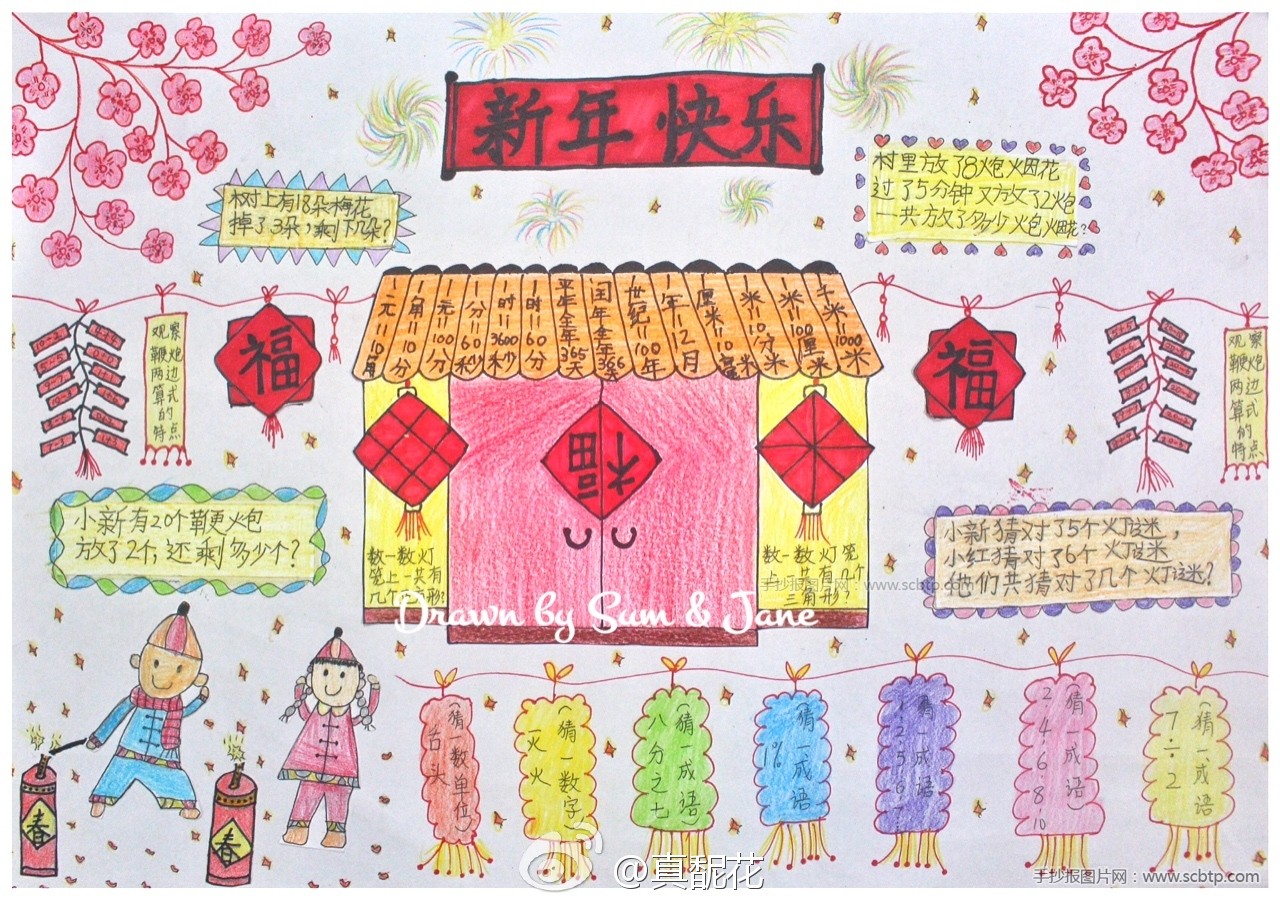 新年快乐
树上有18朵梅花
掉了3朵,剩下几朵?
村里放了8炮火烟花
过了5分钟又放了2炮
一共放了多少炮火烟花?
一元=10角
一角=10分
一元=100分
一分=60秒
一时=3600秒
一时=60分
平年全年365天
闰年全年366天
世纪=100年
一年=12月
一厘米=10毫米
一米=10分米
一米=100厘米
千米=1000米
观察
鞭炮
两边
算式
的
特点
福
福
观察
鞭炮
两边
算式
的
特点
福
小新有20个鞭炮
放了2个,还剩多少个?
数一数灯
笼上一共有
数一数灯笼
上一共有几个
三角形?
小新猜对了5个灯谜,
小红猜对了6个灯谜
他们共猜对了几个灯谜?
手抄报图片网:www.scbtp.com
Drawn by Sum & Jane
春
春
(猜一数单位)
舌头
(猜一数字)
一火火
(猜一成语)
八分之七
(猜一成语)
1%
猜一成语
猜一成语)
2.4.6.8.10
(猜一成语)
7÷2
@真靘花
手抄报图片网:www.scbtp.com